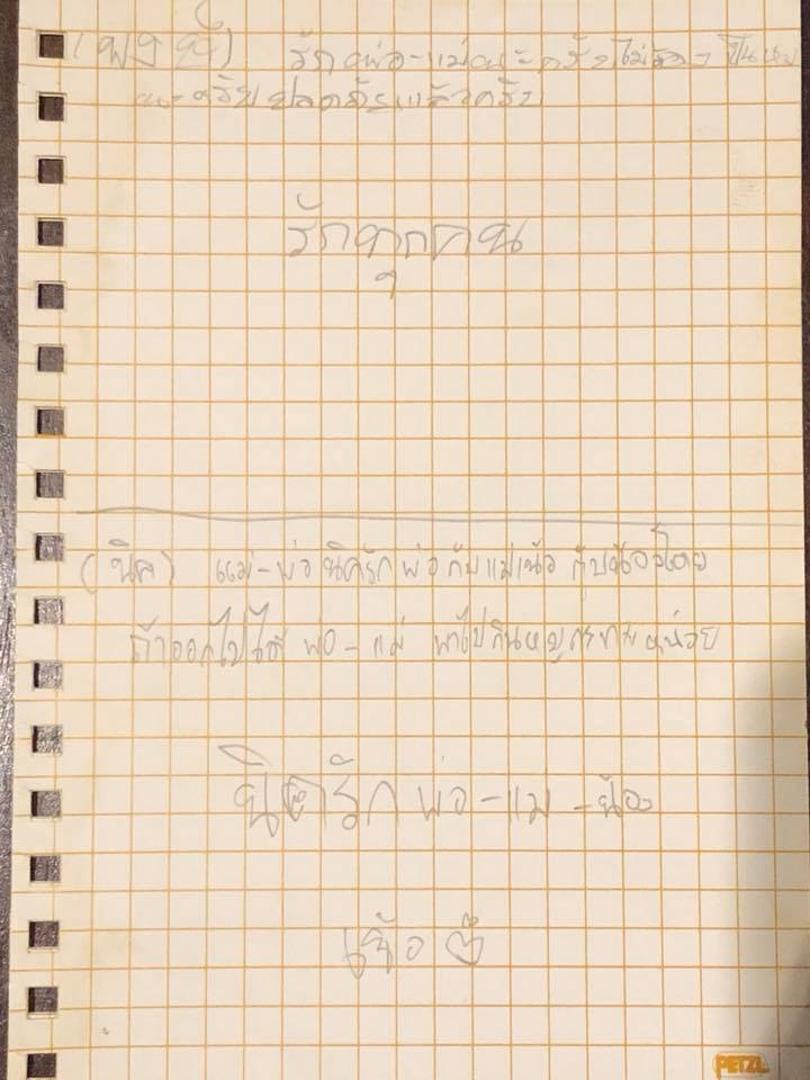 (พงษ์) รักพ่อ-แม่นะครับไม่ต้องเป็นห่วง
นะครับปลอดภัยแล้วครับ
รักทุกคน
(นิค) แม่-พ่อ นิครักพ่อกับแม่เน้อ กับน้องโตย
ถ้าออกไปได้ พ่อ-แม่ พาไปกินหมูกระทะหน่วย
นิครักพ่อ-แม่-น้อง
เน้อ
PETZL